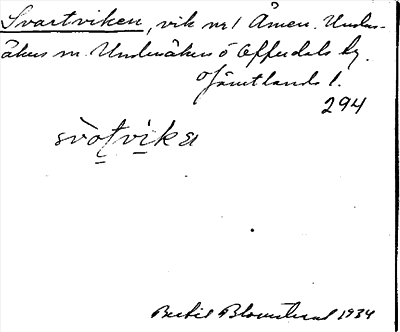 Svartviken, vik nr 1 Ånnen. Under-
åkers sn. Undersåkers o Offerdals tg.
Jämtlands l.
294
svòtvika
Bertil Blomstrand 1934